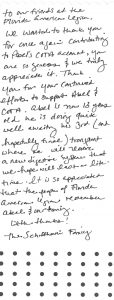 To our friends at the
Florida American Legion.
We wanted to thank you
for once again contributing
to Abel's COTA account, you
are so generous & we truly
appreciate it. Thank
you for your continued
efforts to support Abel &
COTA. Abel is now 10 years
old he is doing quite
well awaiting his 3rd (and
hopefully final) transplant
where he will receive
a new digestive system that
we hope will last a life
time. It is so appreciated
that the people of Florida
American Legion remember
Abel & our family.
With thanks!
The Family